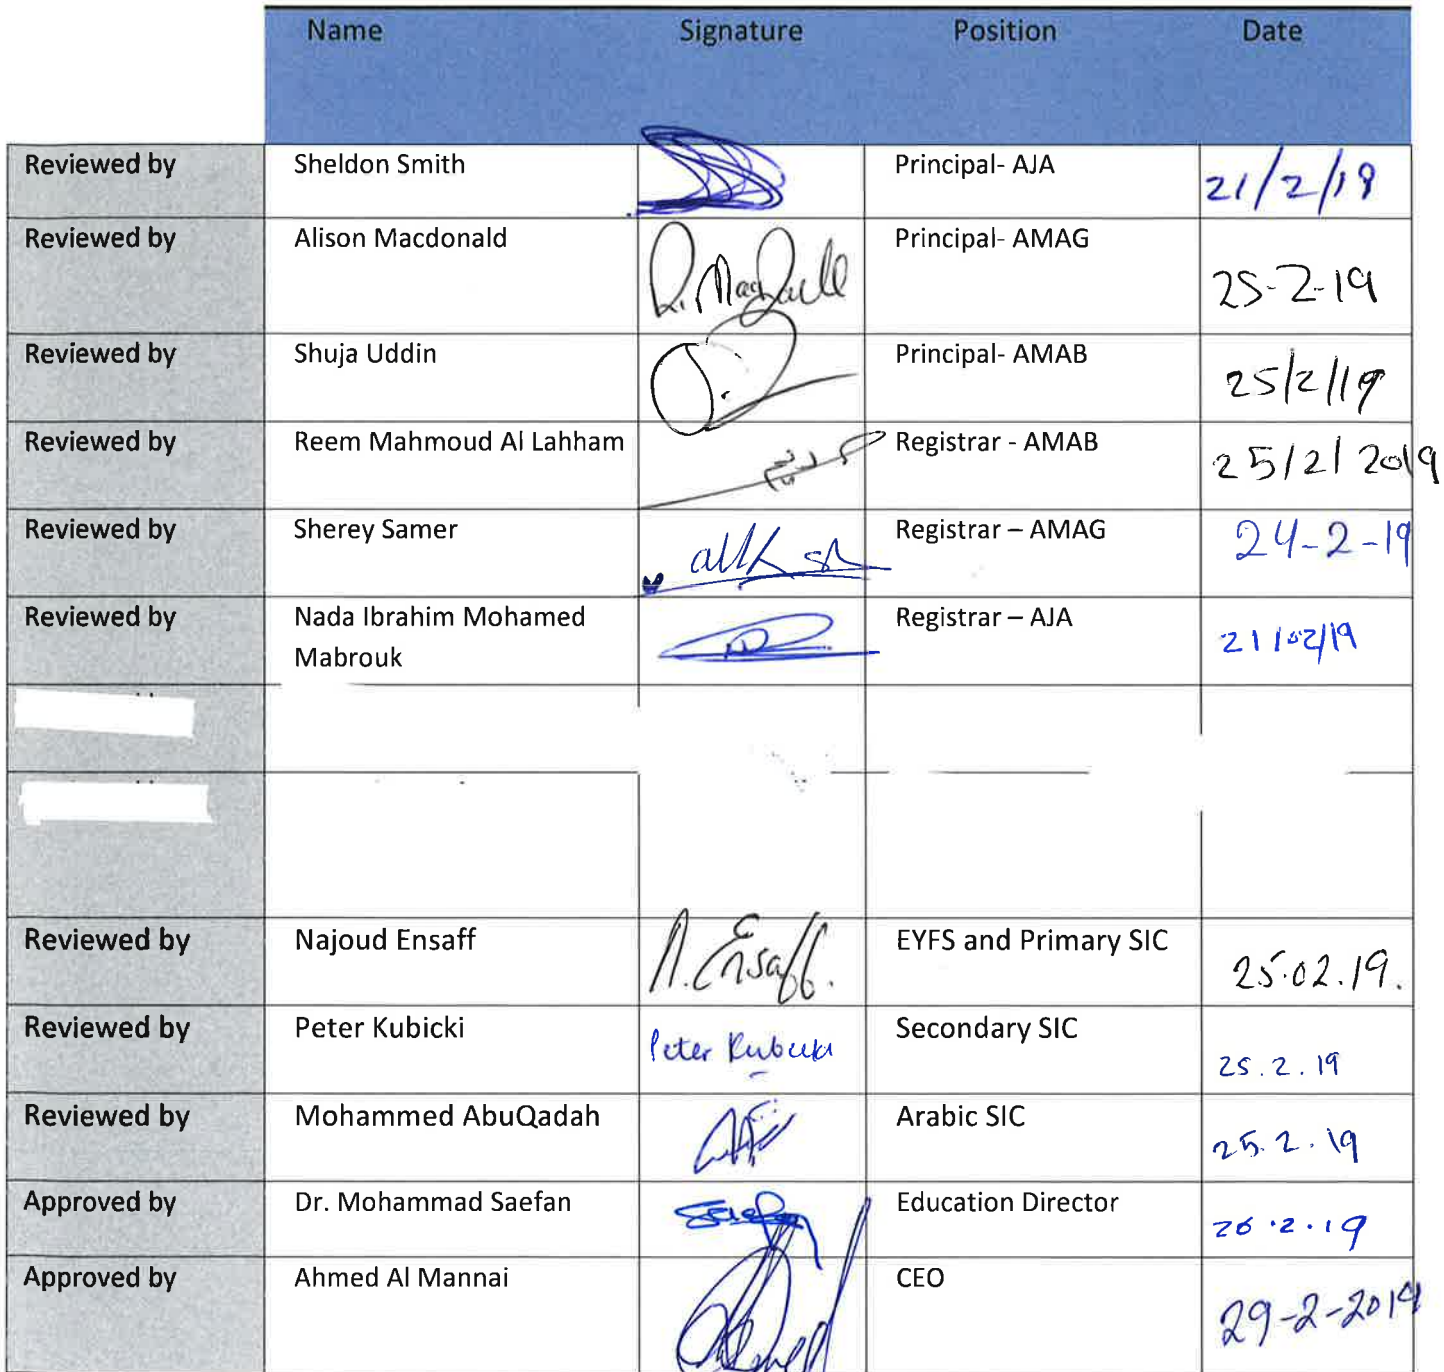 Name Signature Position Date
Reviewed by Sheldon Smith Principal- AJA 21/2/19
Reviewed by Alison Macdonald Principal- AMAG 25-2-19
Reviewed by Shuja Uddin Principal- AMAB 25/2/19
Reviewed by Reem Mahmoud Al Lahham Registrar - AMAB 25/2/2019
Reviewed by Sherey Samer Registrar – AMAG 24-2-19
Reviewed by Nada Ibrahim Mohamed Registrar – AJA 21/02/19
Mabrouk
Reviewed by Najoud Ensaff N. Ensaff. EYFS and Primary SIC 25.02.19.
Reviewed by Peter Kubicki Peter Kubicki Secondary SIC 25.2.19
Reviewed by Mohammed AbuQadah Arabic SIC 25.2.19
Approved by Dr. Mohammad Saefan Saefan Education Director 26.2.19
Approved by Ahmed Al Mannai Ahmed CEO 29-2-2019